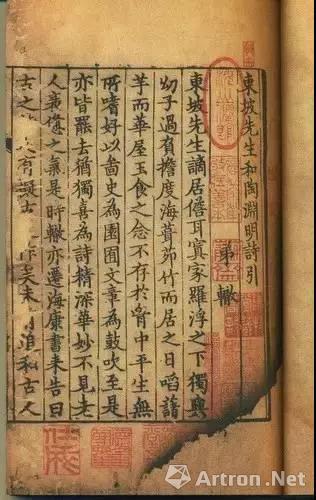 東坡先生和陶淵明詩引
弟轍
東坡先生謫居儋耳寘家羅浮之下獨與
幼子過負擔度海葺茆竹而居之日啗藷
芋而華屋玉食之念不存於胷中平生無
所嗜好以啚史為園囿文章為鼓吹至是
亦皆罷去猶獨喜為詩精深華妙不見老
人衰憊之氣是時轍亦遷海康書來告曰
古之有擬古作矣未追和古人
Artron.Net
Art News Net